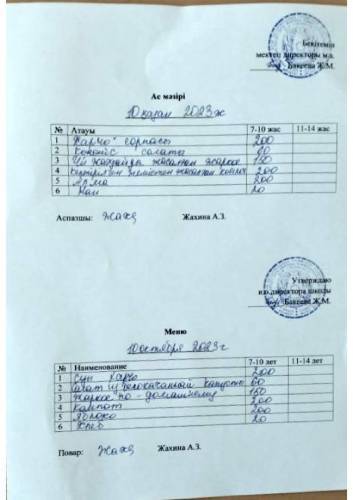 Бекітемін
мектеп директоры м.а.
Бакеева Ж.М.
Ас мәзірі
10 қазан 2023 ж
№ Атауы 7-10 жас 11-14 жас
1 "Харчо" сорпасы 200
2 Көкөніс салаты 60
3 Үй жағдайда жасалған жаркое 150
4 Кептірілген жемістен жасалған компот 200
5 Алма 200
6 Нан 20
Аспазшы: Жахина А.З.
Утверждаю
и.о.директора школы
Бакеева Ж.М.
Меню
10 октября 2023 г
№ Наименование 7-10 лет 11-14 лет
1 Суп Харчо 200
2 Салат из белокочанной капусты 60
3 Жаркое по - домашнему 150
4 Компот 200
5 Яблоко 200
6 Хлеб 20
Повар: Жахина А.З.